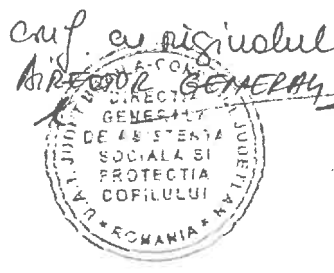 conf. cu originalul
DIRECTOR GENERAL
DIRECTIA
GENERALA
DE ASISTENTA
SOCIALA SI
PROTECTIA
COPILULUI
* ROMANIA *